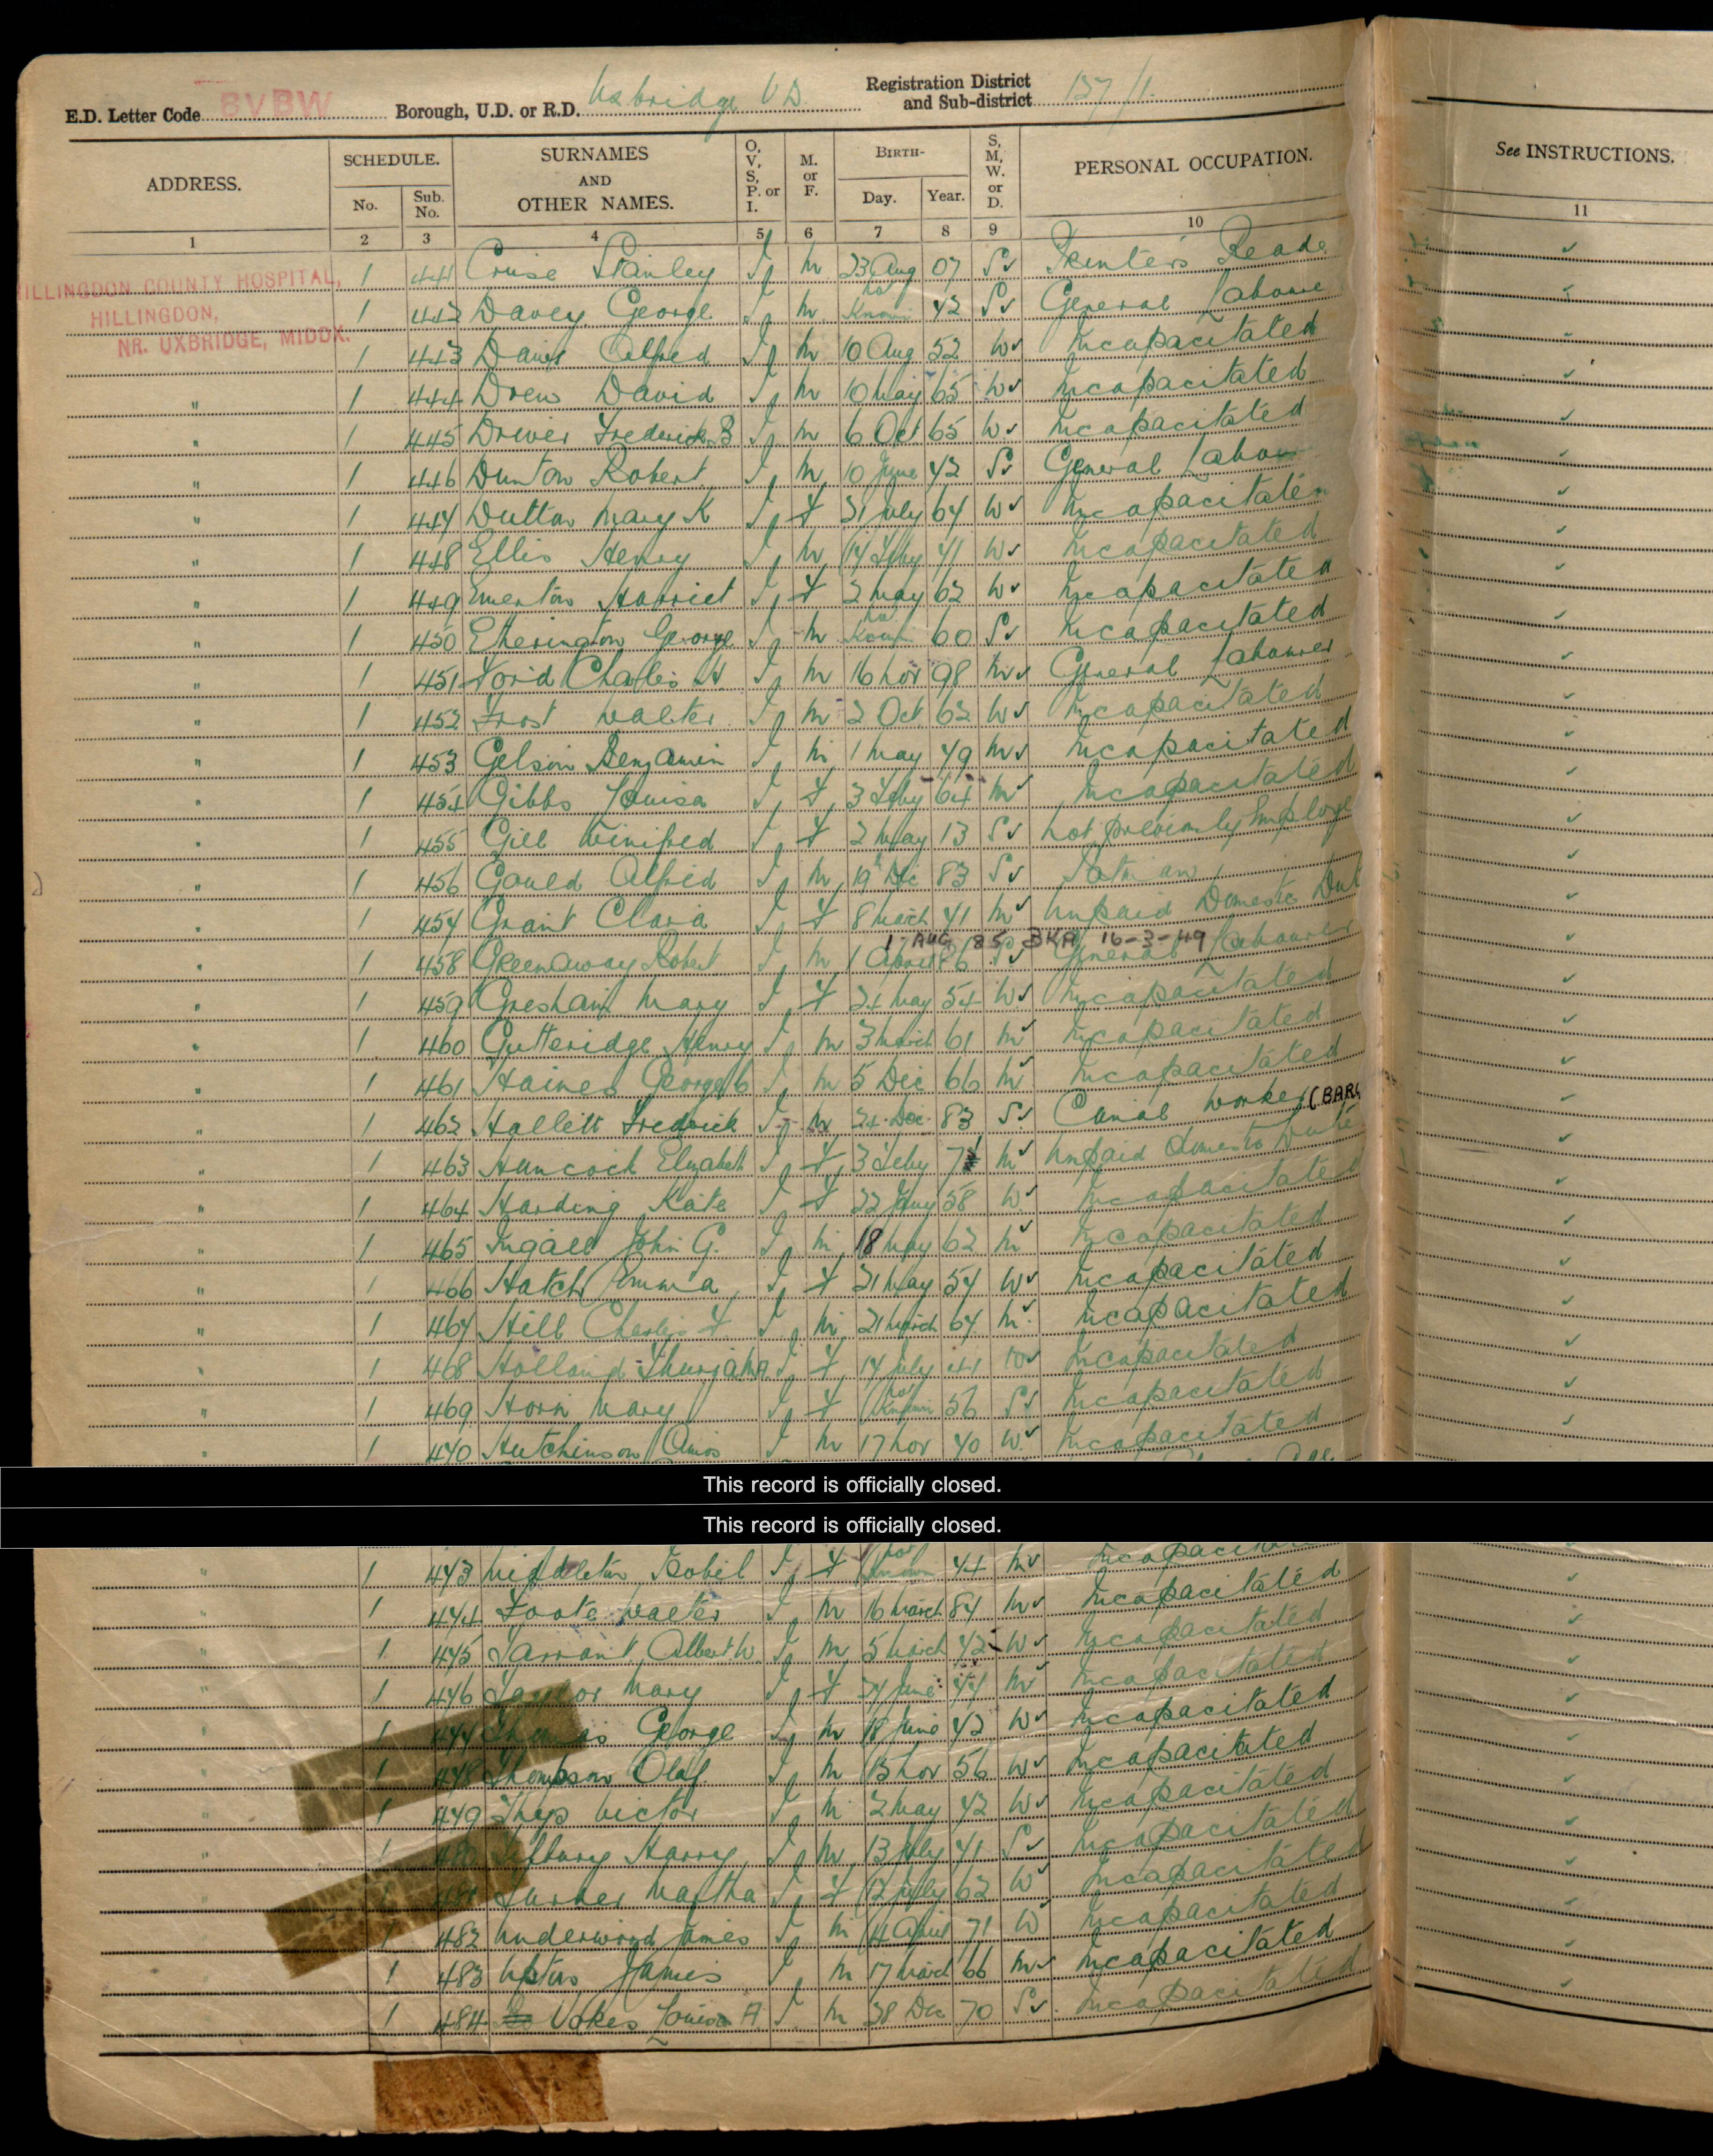 E.D. Letter Code BVBW Borough, U.D. or R.D. Uxbridge U D Registration District and Sub-district 137/1.
ADDRESS. SCHEDULE. No. Sub. No. SURNAMES AND OTHER NAMES. O, V, S, P. or I. M. or F. BIRTH- Day. Year. S, M, W. or D. PERSONAL OCCUPATION. See INSTRUCTIONS.
1 2 3 4 5 6 7 8 9 10 11
HILLINGDON COUNTY HOSPITAL,
HILLINGDON,
NR. UXBRIDGE, MIDDX.
1 441 Cruise Stanley I M 23 Aug 07 S Printer's Reade
1 442 Davey George I M Not Known 42 S General Laboure
1 443 Alfred I M 10 Aug 52 W Incapacitated
" 1 444 Drew David I M 10 May 65 W Incapacitated
" 1 445 Driver Frederick B I M 6 Oct 65 W Incapacitated
" 1 446 Dunton Robert I M 10 June 72 S General Labour
" 1 447 Dutton Mary K I F 31 July 67 W Incapacitated
" 1 448 Ellis Henry I M 14 Feby 71 W Incapacitated
" 1 449 Emerton Harriet I F 2 May 62 W Incapacitated
" 1 450 Etherington George I M Not Known 60 S Incapacitated
" 1 451 Ford Charles H I M 16 Nov 98 M General Labourer
" 1 452 Frost Walter I M 2 Oct 62 W Incapacitated
" 1 453 Gelson Benjamin I M 1 May 79 M Incapacitated
" 1 454 Gibbs Louisa I F 3 Feby 64 M Incapacitated
" 1 455 Gill Winifred I F 2 May 13 S Not previously Employe
" 1 456 Gould Alfred I M 19 Dec 83 S
" 1 457 Grant Clara I F 8 March 71 M Unpaid Domestic Dut
1 AUG 85 BKA 16-3-49
" 1 458 Greenaway Robert I M 1 April 86 S General Labourer
" 1 459 Gresham Mary I F 24 May 54 W Incapacitated
" 1 460 Gutteridge Henry I M 3 March 61 M Incapacitated
" 1 461 Haines George C I M 5 Dec 66 M Incapacitated
" 1 462 Hallett Fredrick I M 24 Dec 83 S Canal Worker (BARG
" 1 463 Hancock Elizabeth I F 3 Feby M Unpaid Domestic Dutie
" 1 464 Harding Kate I F 22 58 W Incapacitated
" 1 465 Ingall John G. I M 18 May 62 M Incapacitated
" 1 466 Hatch Emma I F 31 May 57 W Incapacitated
" 1 467 Hill Charles F I M 21 March 67 M Incapacitated
" 1 468 Holland I F 14 July W Incapacitated
" 1 469 Horn Mary I F Not Known 56 S Incapacitated
" 1 470 Hutchinson Amos I M 17 Nov 70 W Incapacitated
This record is officially closed.
This record is officially closed.
1 473 Middleton Isobel I F Not Known 74 M Incapacitated
1 474 Foote Walter I M 16 March 87 M Incapacitated
" 1 475 Tarrant Albert W. I M 5 March 72 W Incapacitated
" 1 476 Taylor Mary I F 24 June M Incapacitated
" 1 477 Thomas George I M 18 June 72 W Incapacitated
" 1 478 Thompson Olaf I M 13 Nov 56 W Incapacitated
" 1 479 Victor I M 2 May 72 W Incapacitated
" 1 480 Harry I M 13 71 S Incapacitated
" 1 481 Turner Martha I F 12 July 62 W Incapacitated
" 1 482 Underwood James I M 14 April 71 W Incapacitated
1 483 Upton James I M 17 March 66 M Incapacitated
1 484 Vokes Louisa A I M 28 Dec 70 S Incapacitated